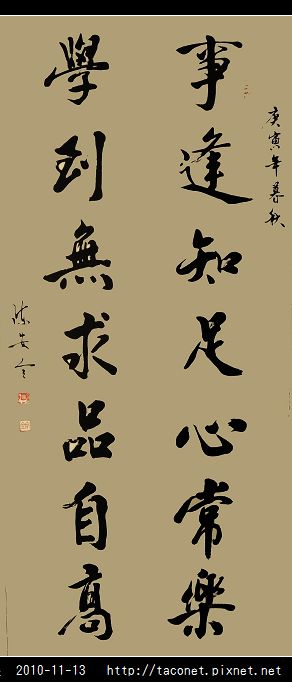 庚寅年暮秋
事逢知足心常樂
學到無求品自高
陳
2010-11-13 http://taconet.pixnet.net